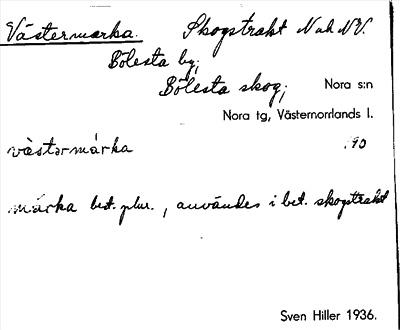 Västermarka. Skogstrakt N och NV.
Bölesta by;
Bölesta skog; Nora s:n
Nora tg, Västernorrlands l.
västərmárka 190
márka best. plur., användes i bet. skogstrakt
Sven Hiller 1936.